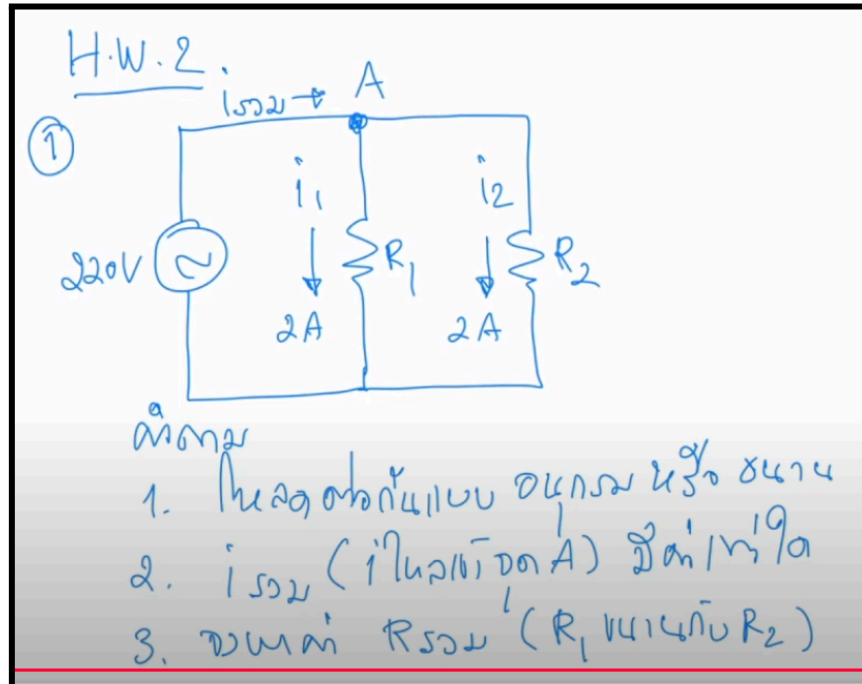 H.W.2.
iรวม → A
①
i1
i2
220V
R1
R2
2A
2A
คำถาม
1. โหลดต่อกันแบบ อนุกรม หรือ ขนาน
2. iรวม (iไหลเข้าจุด A) มีค่าเท่าใด
3. จงหาค่า Rรวม (R1 ขนานกับ R2)